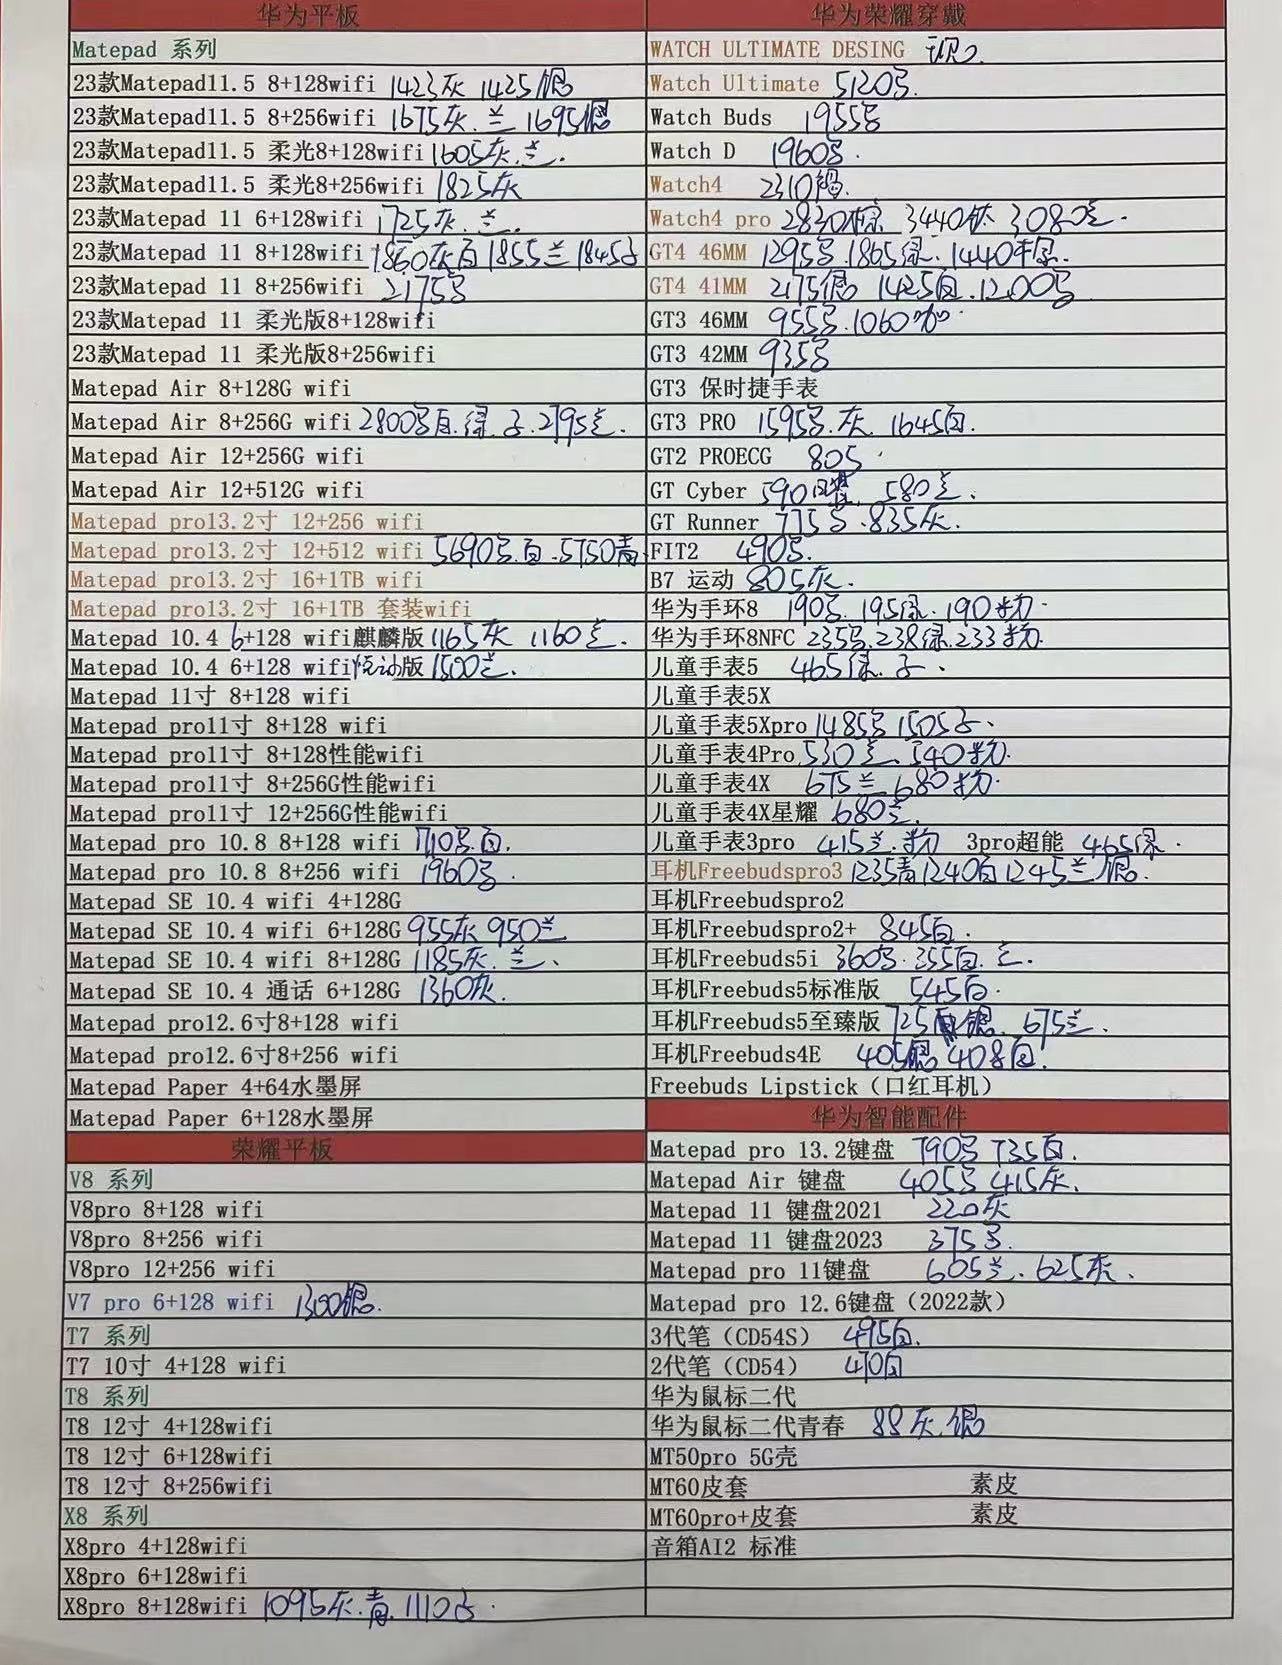 华为平板
Matepad 系列
23款Matepad11.5 8+128wifi 1423灰 1425银
23款Matepad11.5 8+256wifi 1675灰.兰 1695银
23款Matepad11.5 柔光8+128wifi 1605灰.兰.
23款Matepad11.5 柔光8+256wifi 1825灰
23款Matepad 11 6+128wifi 1725灰.兰.
23款Matepad 11 8+128wifi 1860灰白 1855兰 1845
23款Matepad 11 8+256wifi 2175
23款Matepad 11 柔光版8+128wifi
23款Matepad 11 柔光版8+256wifi
Matepad Air 8+128G wifi
Matepad Air 8+256G wifi 2800 白.绿. 2795兰.
Matepad Air 12+256G wifi
Matepad Air 12+512G wifi
Matepad pro13.2寸 12+256 wifi
Matepad pro13.2寸 12+512 wifi 5690 白.5750青
Matepad pro13.2寸 16+1TB wifi
Matepad pro13.2寸 16+1TB 套装wifi
Matepad 10.4 6+128 wifi麒麟版 1165灰 1160兰.
Matepad 10.4 6+128 wifi 版 1500兰.
Matepad 11寸 8+128 wifi
Matepad pro11寸 8+128 wifi
Matepad pro11寸 8+128性能wifi
Matepad pro11寸 8+256G性能wifi
Matepad pro11寸 12+256G性能wifi
Matepad pro 10.8 8+128 wifi 1710 白.
Matepad pro 10.8 8+256 wifi 1960
Matepad SE 10.4 wifi 4+128G
Matepad SE 10.4 wifi 6+128G 955灰 950兰
Matepad SE 10.4 wifi 8+128G 1185灰.兰.
Matepad SE 10.4 通话 6+128G 1360灰.
Matepad pro12.6寸8+128 wifi
Matepad pro12.6寸8+256 wifi
Matepad Paper 4+64水墨屏
Matepad Paper 6+128水墨屏
荣耀平板
V8 系列
V8pro 8+128 wifi
V8pro 8+256 wifi
V8pro 12+256 wifi
V7 pro 6+128 wifi 1300银.
T7 系列
T7 10寸 4+128 wifi
T8 系列
T8 12寸 4+128wifi
T8 12寸 6+128wifi
T8 12寸 8+256wifi
X8 系列
X8pro 4+128wifi
X8pro 6+128wifi
X8pro 8+128wifi 1095灰.青.1110
华为荣耀穿戴
WATCH ULTIMATE DESING
Watch Ultimate 5120
Watch Buds 1955
Watch D 1960
Watch4 2310
Watch4 pro 2830棕 3440钛 3080兰.
GT4 46MM 1295 1865绿.1440
GT4 41MM 2175银 1425白.1200
GT3 46MM 955 .1060咖.
GT3 42MM 935
GT3 保时捷手表
GT3 PRO 1595 .灰 1645白.
GT2 PROECG 805
GT Cyber 590 580兰.
GT Runner 775 .835灰.
FIT2 490
B7 运动 805灰.
华为手环8 190 .195绿.190粉.
华为手环8NFC 235 .238绿.233粉.
儿童手表5 465绿.
儿童手表5X
儿童手表5Xpro 1485 1505
儿童手表4Pro 530兰 540粉.
儿童手表4X 675兰 680粉.
儿童手表4X星耀 680兰.
儿童手表3pro 415兰.粉 3pro超能 465绿.
耳机Freebudspro3 1235青1240白1245兰 银.
耳机Freebudspro2
耳机Freebudspro2+ 845白.
耳机Freebuds5i 360 .355白.兰.
耳机Freebuds5标准版 545白.
耳机Freebuds5至臻版 725 银. 675兰.
耳机Freebuds4E 405银 408白.
Freebuds Lipstick（口红耳机）
华为智能配件
Matepad pro 13.2键盘 790 735白.
Matepad Air 键盘 405 415灰.
Matepad 11 键盘2021 220灰
Matepad 11 键盘2023 375
Matepad pro 11键盘 605兰.625灰.
Matepad pro 12.6键盘（2022款）
3代笔（CD54S） 495白.
2代笔（CD54） 470白
华为鼠标二代
华为鼠标二代青春 88灰.银
MT50pro 5G壳
MT60皮套 素皮
MT60pro+皮套 素皮
音箱AI2 标准